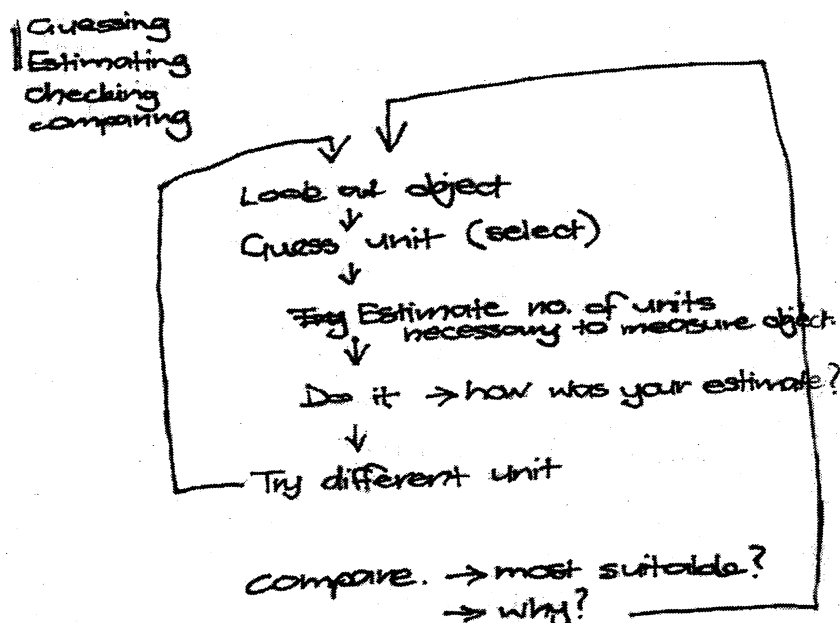 Guessing
Estimating
checking
comparing
Look at object
Guess unit (select)
Try Estimate no. of units
necessary to measure object.
Do it → how was your estimate?
Try different unit
compare. → most suitable?
→ why?